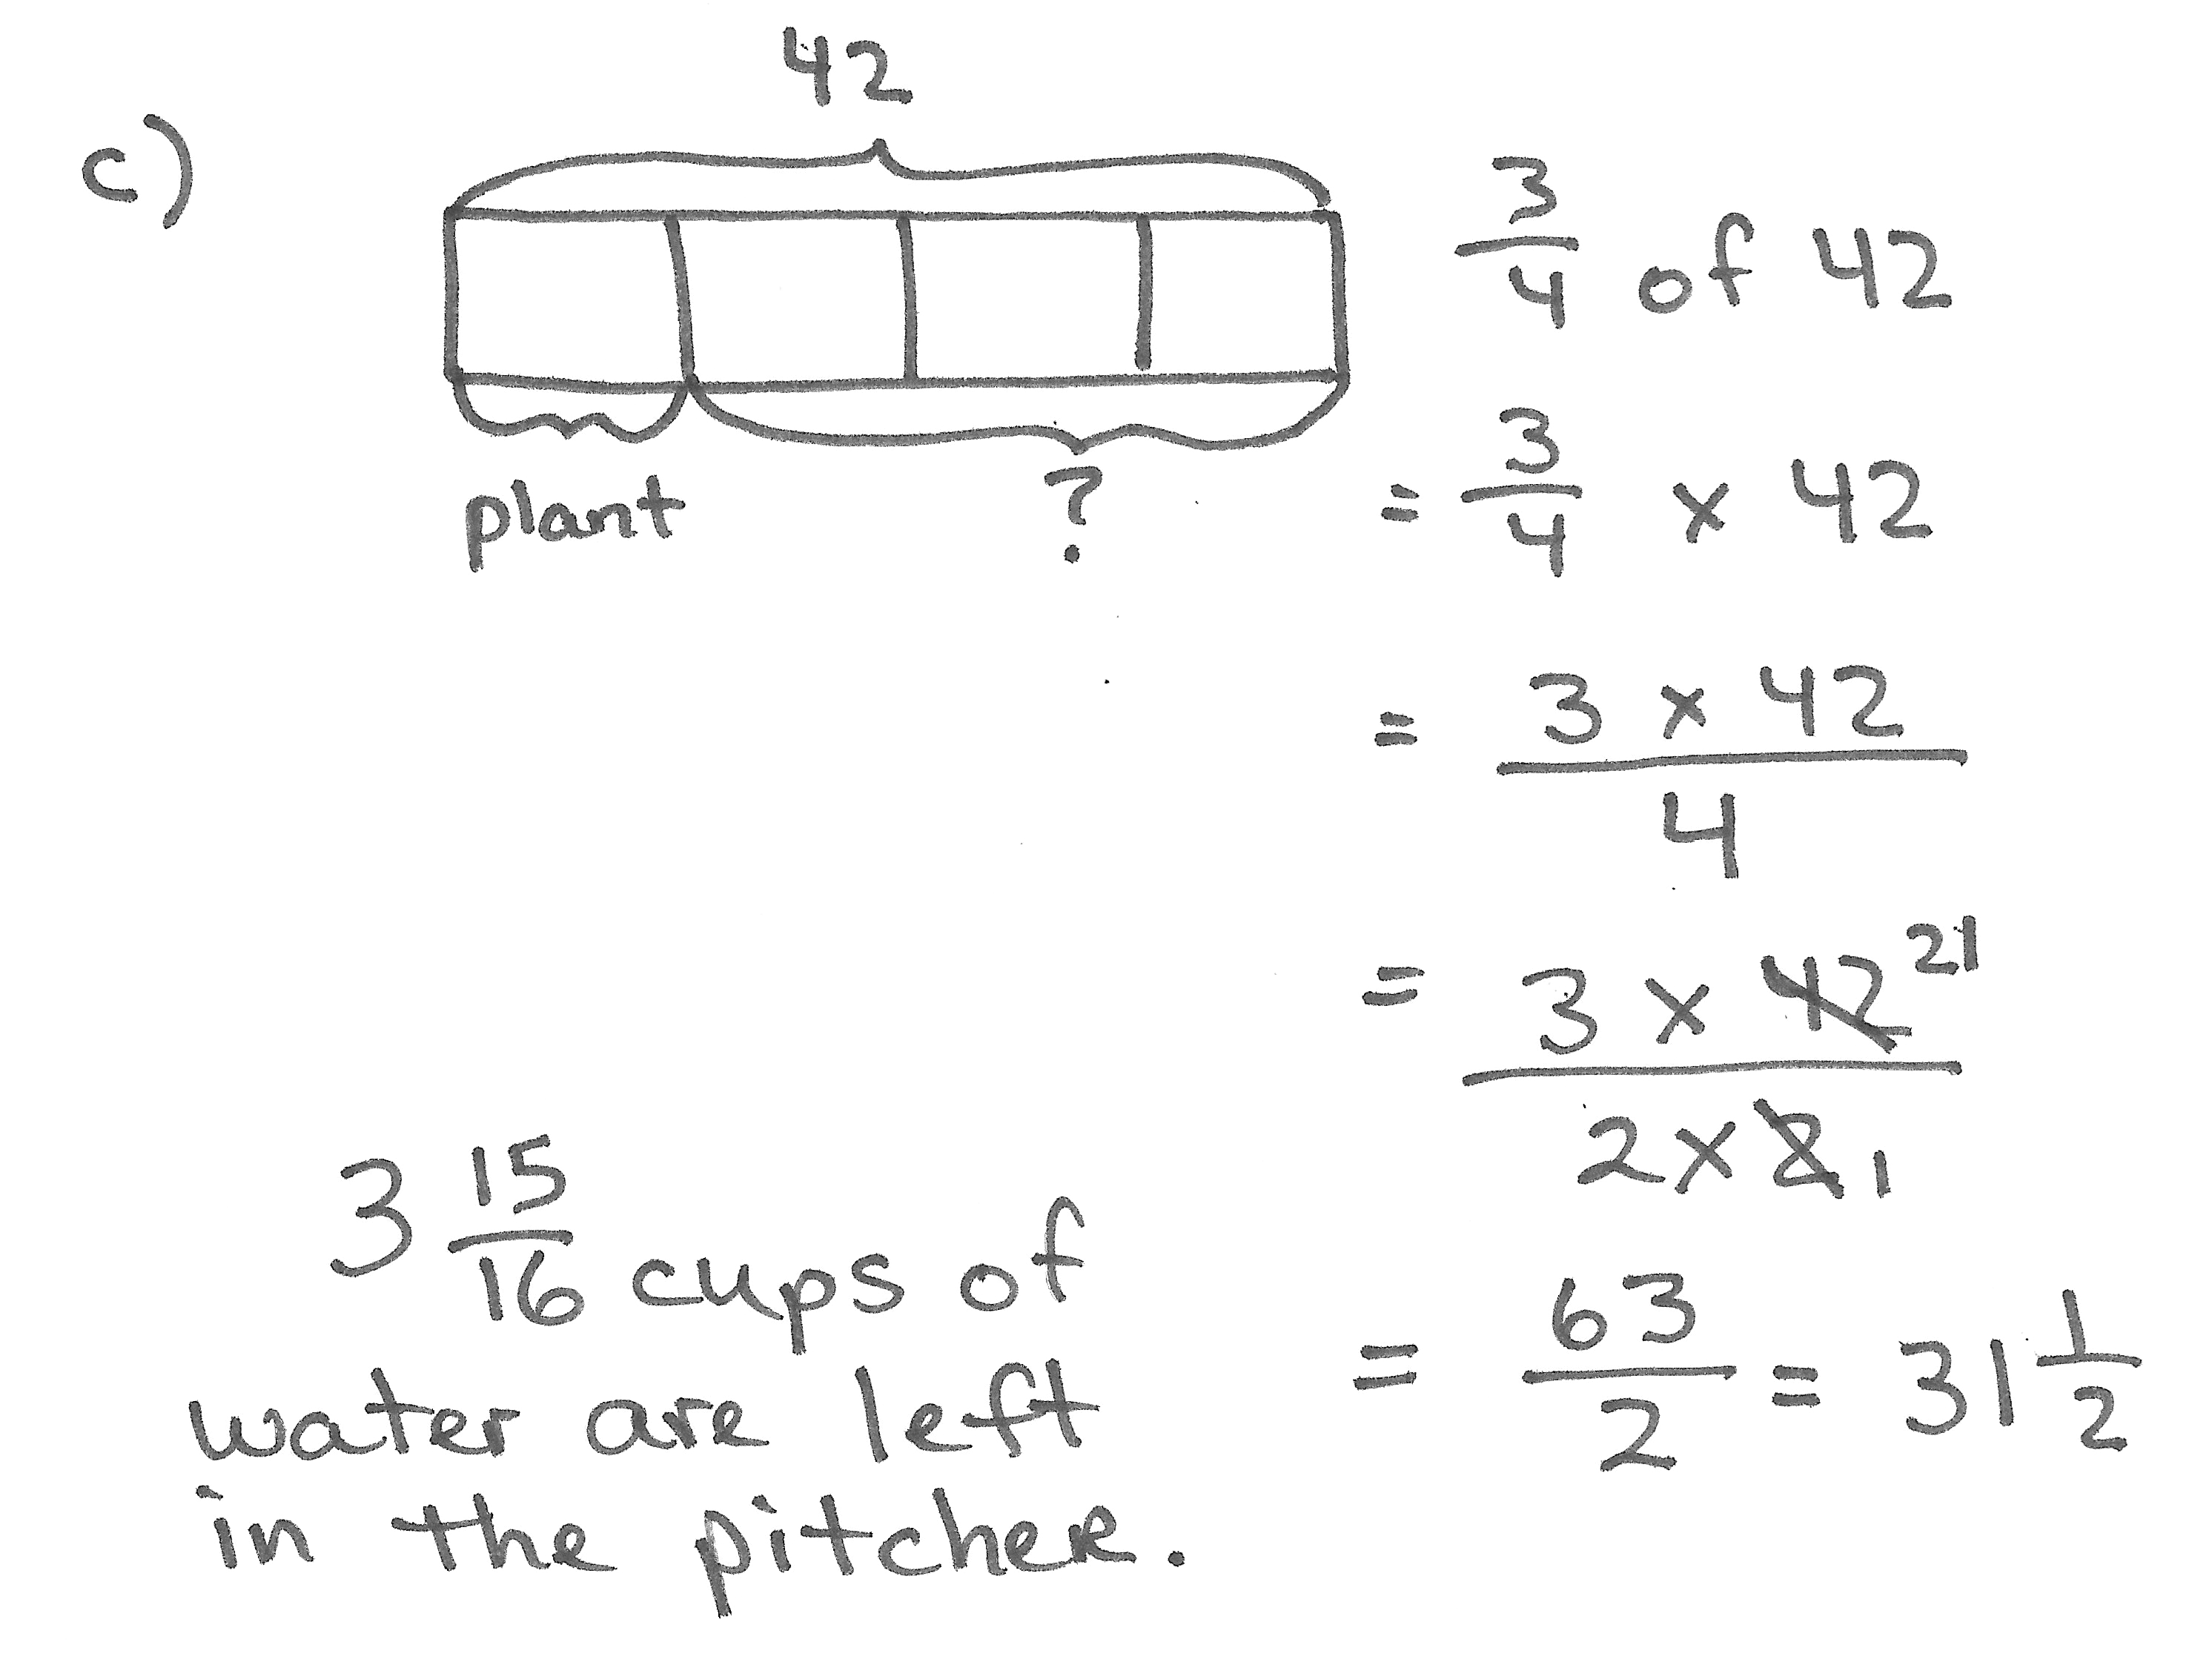 c)
42
plant ?
3/4 of 42
= 3/4 x 42
= 3 x 42 / 4
= 3 x 42 21 / 2 x 2 1
= 63/2 = 31 1/2
3 15/16 cups of
water are left
in the pitcher.